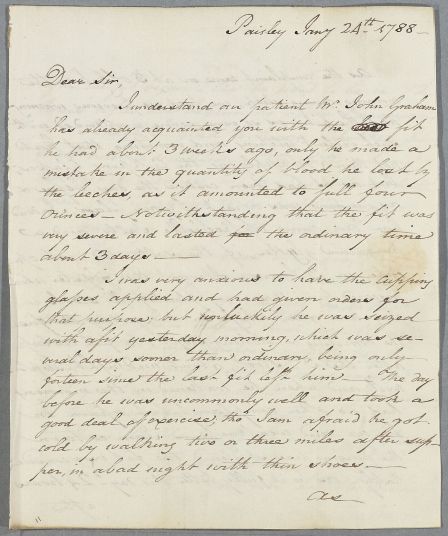 Paisley Jany 24th 1788 —
Dear Sir,
I understand our patient Mr. John Graham
has already acquainted you with the fit
he had about 3 weeks ago, only he made a
mistake in the quantity of blood he lost by
the leeches, as it amounted to full four
ounces — Notwithstanding that the fit was
very severe and lasted for the ordinary time
about 3 days —
I was very anxious to have the cupping
glasses applied and had given orders for
that purpose but unluckily he was seized
with a fit yesterday morning, which was se-
veral days sooner than ordinary, being only
forteen since the last fit left him — The day
before he was uncommonly well and took a
good deal of exercise, tho' I am afraid he got
cold by walking two or three miles after sup-
per, in a bad night with thin shoes —
as
11